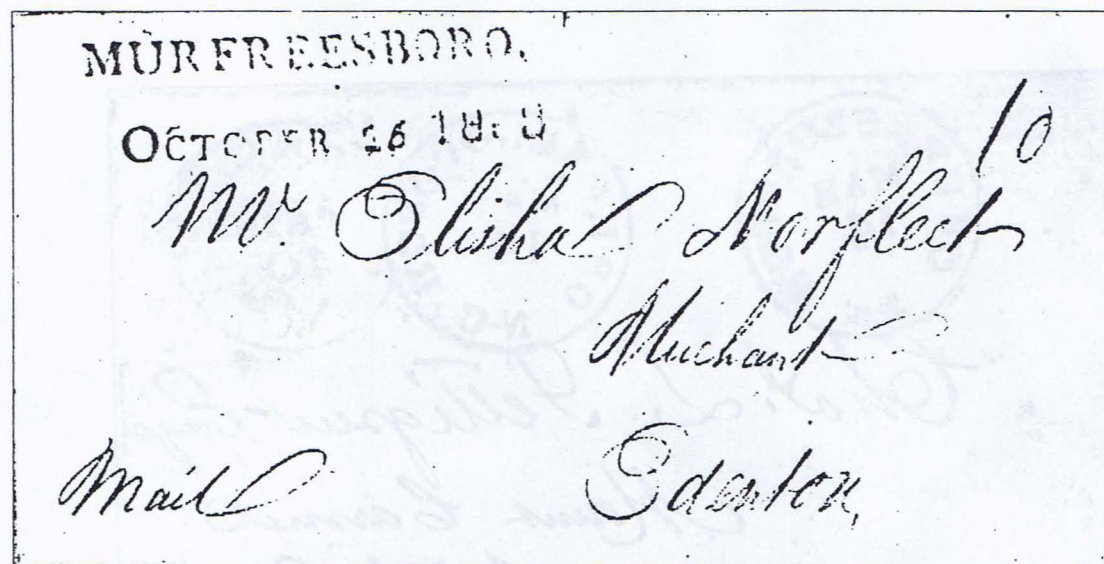 MURFREESBORO.
OCTOBER 26
10
Mr. Elisha Norfleet
Merchant
Mail
Edenton,